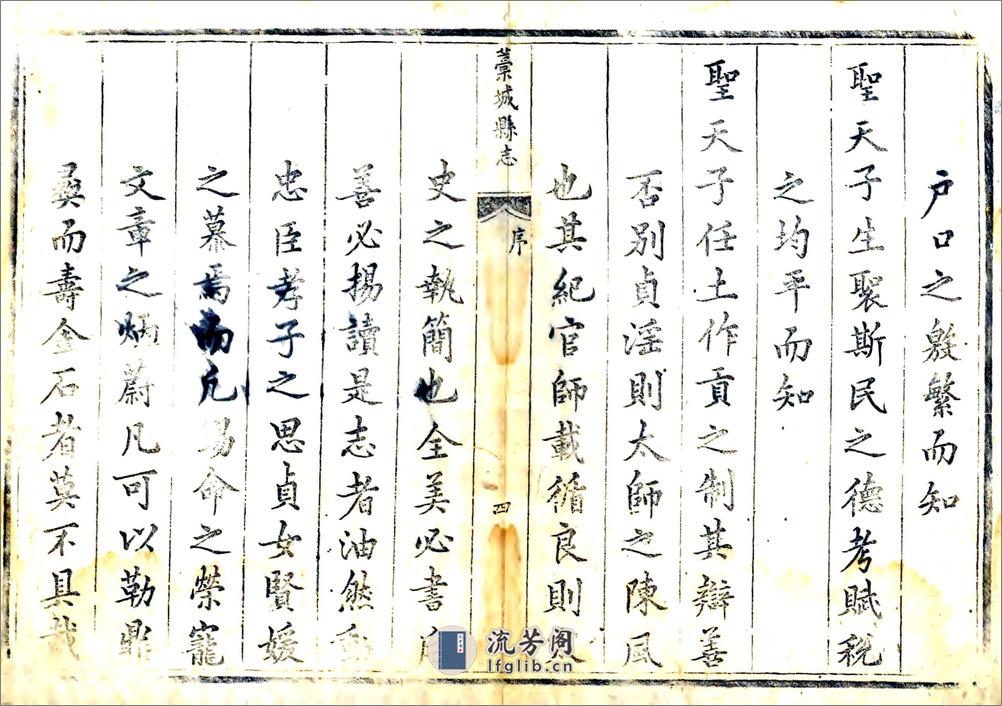 戶口之殷繁而知
聖天子生聚斯民之德考賦稅
之均平而知
聖天子任土作貢之制其辯善
否別貞淫則太師之陳風
也其紀官師載循良則
藁城縣志
序
四
史之執簡也全美必書
善必揚讀是志者油然動
忠臣孝子之思貞女賢媛
之慕焉而凡易命之榮寵
文章之炳蔚凡可以勒鼎
彝而壽金石者莫不具哉
流芳阁
lfglib.cn